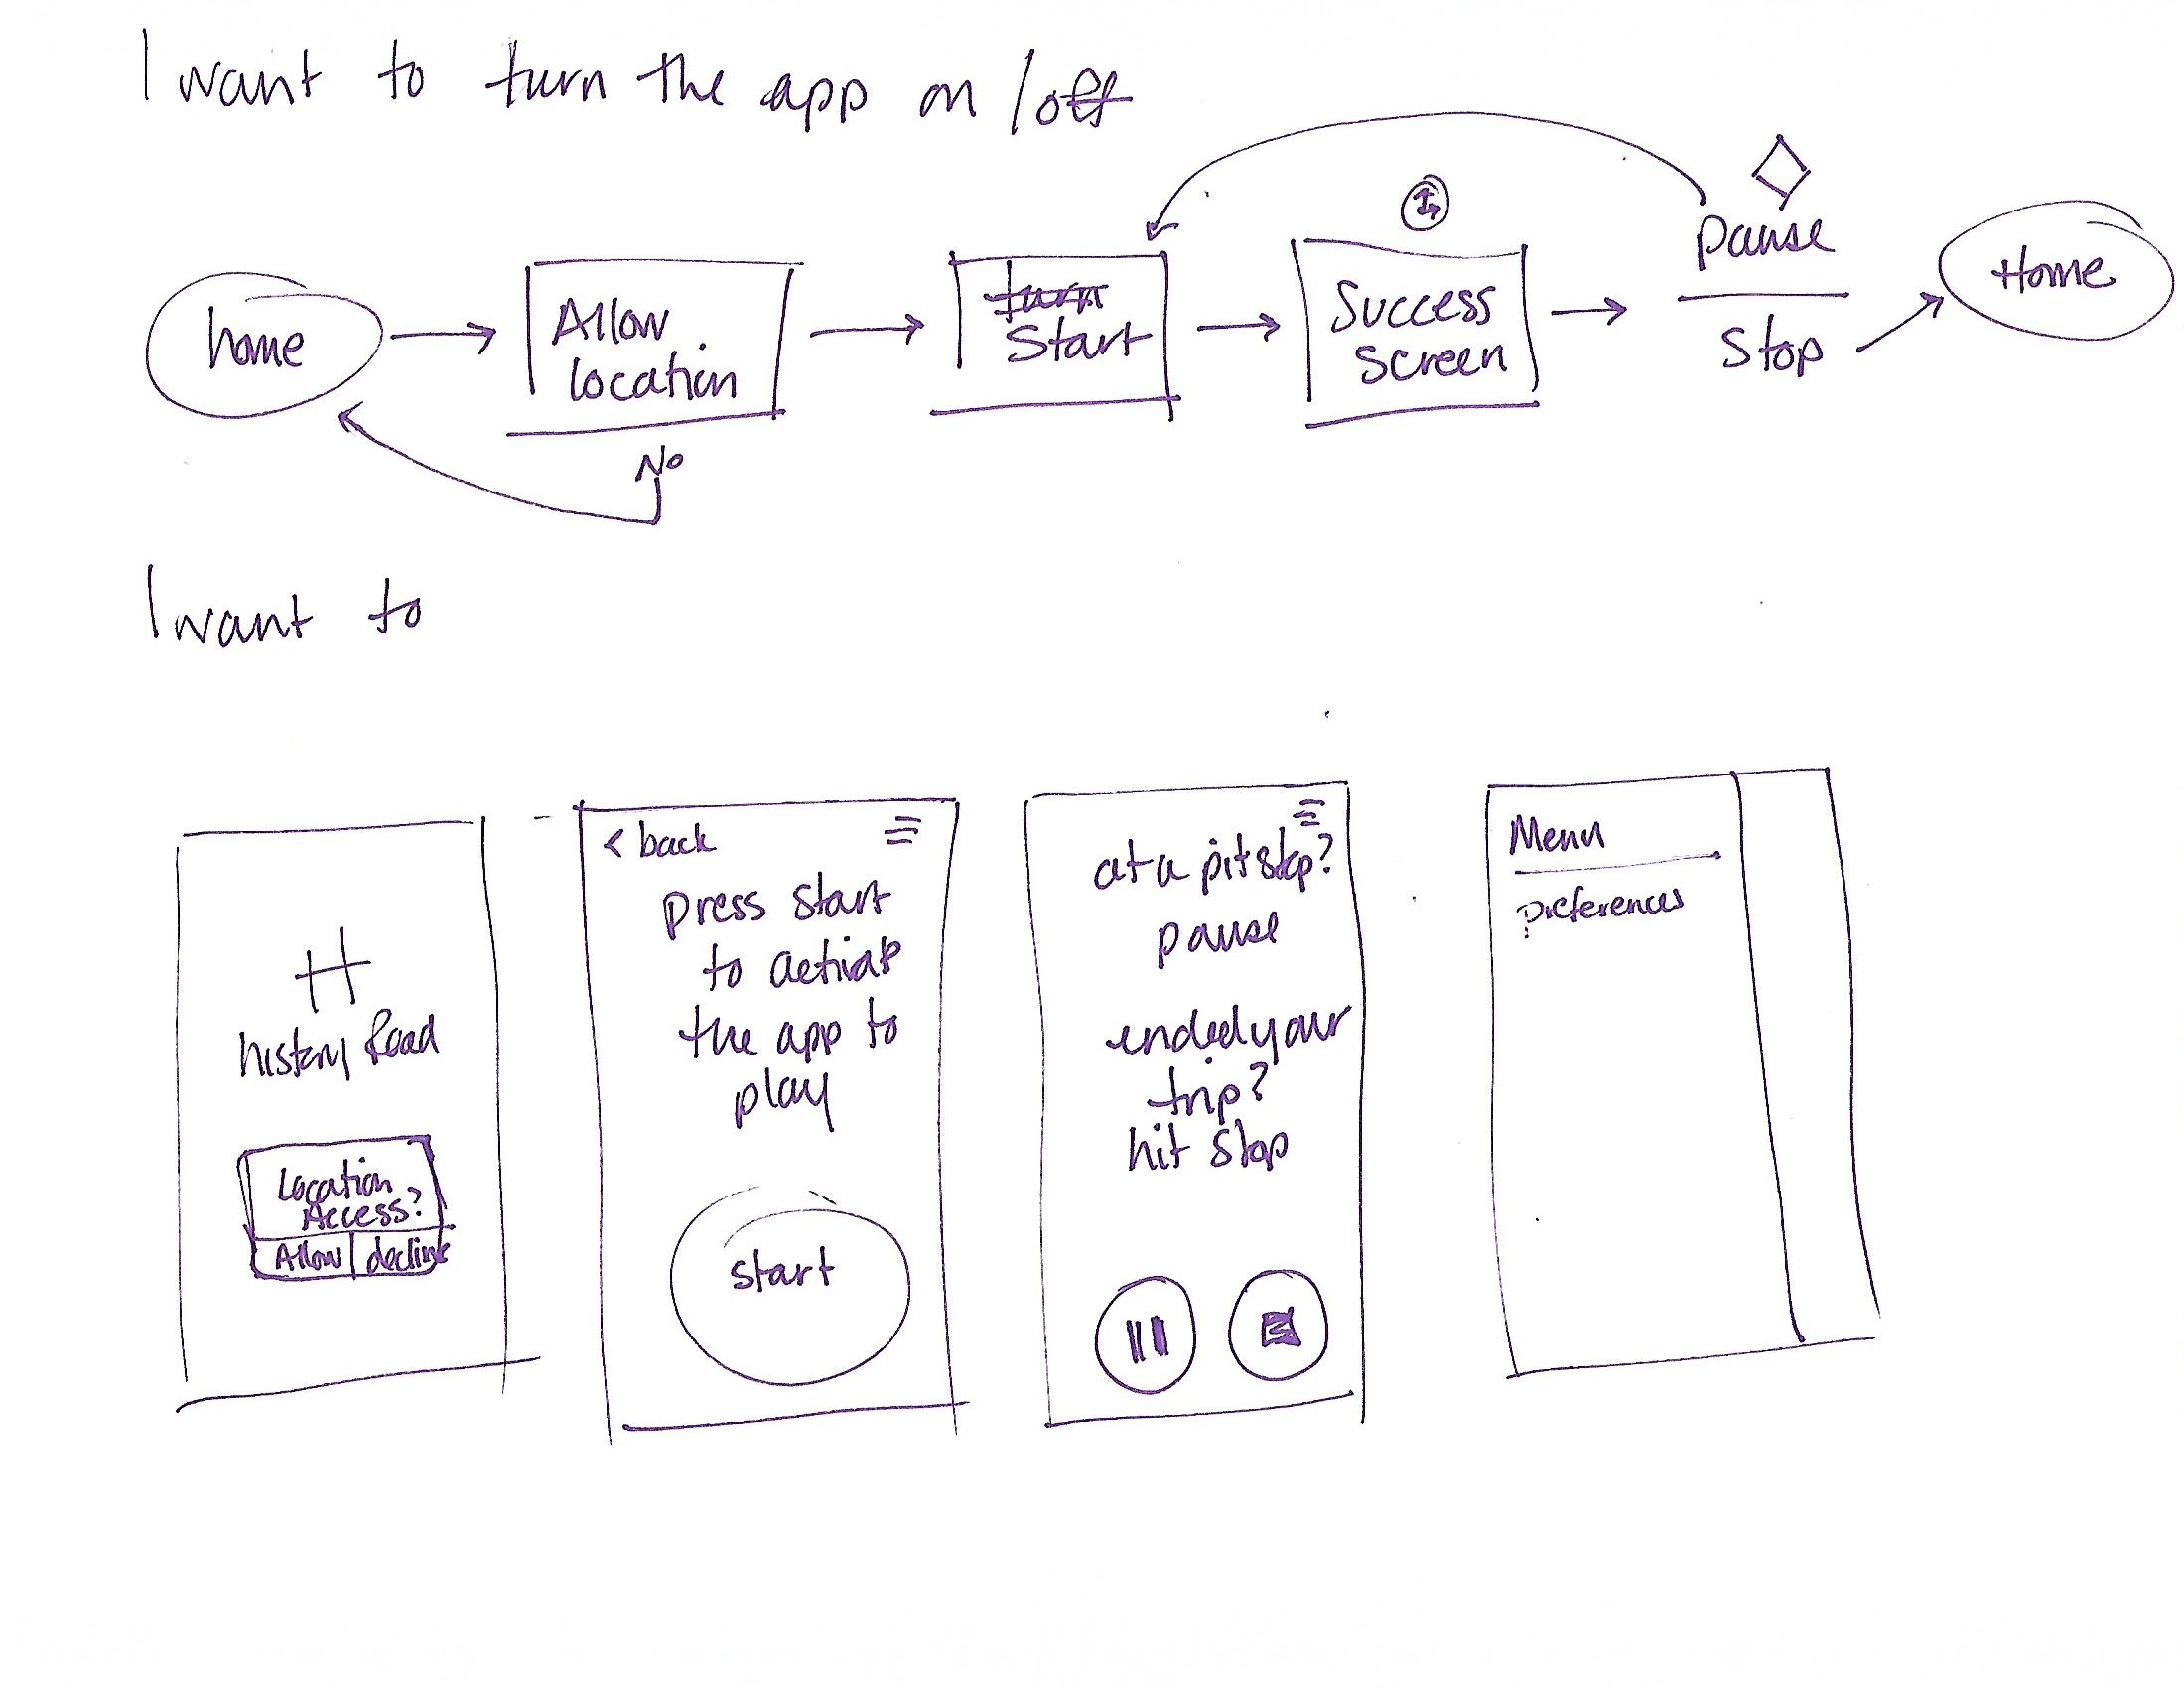 I want to turn the app on / off
home
Allow
location
No
turn
Start
Success
screen
Pause
Stop
Home
I want to
H
history Road
Location
Access?
Allow
decline
< back
press start
to
the app to
play
start
at a pitstop?
pause
ended your
trip?
hit stop
Menu
preferences